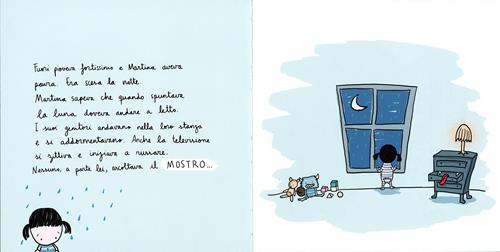 Fuori pioveva fortissimo e Martina aveva
paura. Era scesa la notte.
Martina sapeva che quando spuntava
la luna doveva andare a letto.
I suoi genitori andavano nella loro stanza
e si addormentavano. Anche la televisione
si zittiva e iniziava a russare.
Nessuno, a parte lei, ascoltava il MOSTRO...